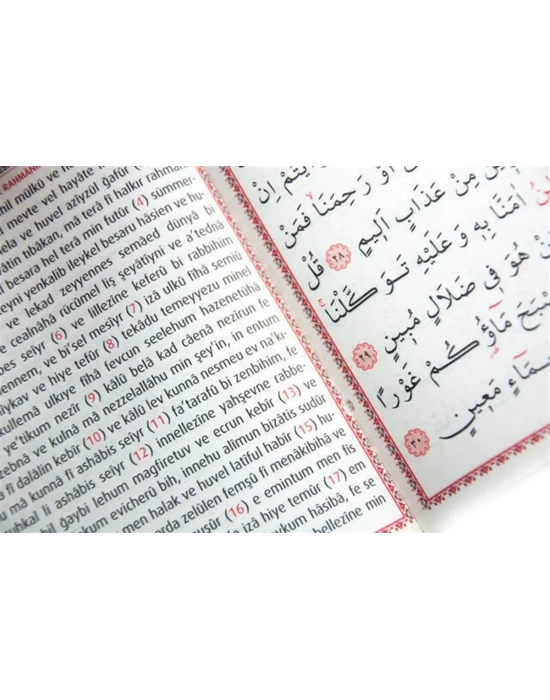 RAHMAN
mülkü ve
meyte vel hayâte
ve huvel azîyzül gafûr
tıbâkan, mâ terâ fî halkır rahmâ
besara hel terâ min futûr (4) sümmer-
yenkalib ileykel besaru hâsien ve hu-
ve lekad zeyyennes semâed dünyâ bi
cealnâhâ rücûmel liş şeyâtîyni ve a'tednâ
seiyr (6) ve lillezîne keferû bi rabbihim
ennem, ve bi'sel mesîyr (7) izâ ulkû fîhâ semiû
ve hiye tefûr (8) tekâdu temeyyezu minel
küllemâ ulkıye fîhâ fevcun seelehum hazenetühâ
e'tikum nezîr (9) kâlû belâ kad câenâ nezîrun fe
zebnâ ve kulnâ mâ nezzelallâhu min şey'in, in entum
fî dalâlin kebîr (10) ve kâlû lev kunnâ nesmeu ev na'k-
mâ kunnâ fî ashâbis seiyr (11) fa'tarafû bi zenbihim, fe
uhkal li ashâbis seiyr (12) innellezîne yahşevne rabbe-
bil ğaybi lehum mağfiretuv ve ecrun kebîr (13) ve
kum evicherû bih, innehu alîmun bizâtis sudûr
men halak ve huvel latîful habîr (15) hu-
arda zelûlen femşû fî menâkibihâ ve
uşûr (16) e emintum men fis
izâ hiye temûr (17) em
aykum hâsıbâ, fe se
bellezîne min
يْتُمْ اِنْ
اَوْ رَحِمَنَا فَمَنْ
مِنْ عَذَابٍ اَلِيمٍ ﴿٢٨﴾ قُلْ
اٰمَنَّا بِهِ وَعَلَيْهِ تَوَكَّلْنَا
مَنْ هُوَ فِي ضَلَالٍ مُبِينٍ ﴿٢٩﴾
اَصْبَحَ مَاؤُكُمْ غَوْرًا
بِمَاءٍ مَعِينٍ ﴿٣٠﴾